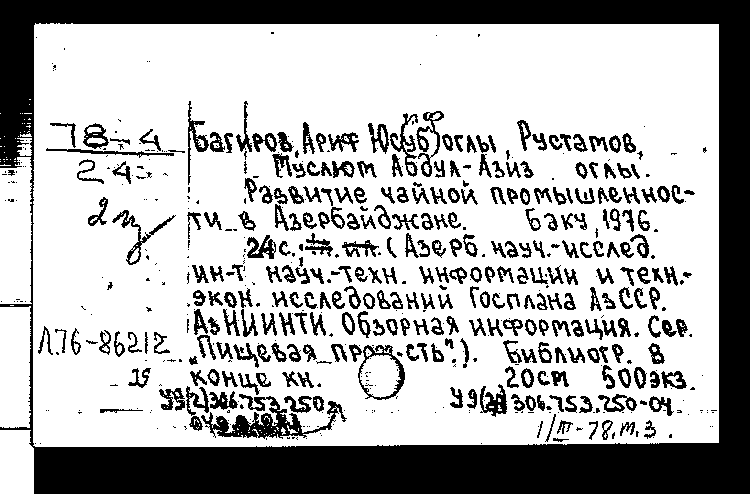 78-4
24
Багиров, Ариф Юсуб оглы, Рустамов,
Муслюм Абдул-Азиз оглы.
Развитие чайной промышленнос-
ти в Азербайджане. Баку, 1976.
24 с.; (Азерб. науч.-исслед.
ин-т науч.-техн. информации и техн.-
экон. исследований Госплана АзССР.
АзНИИНТИ. Обзорная информация. Сер.
"Пищевая пром-сть".). Библиогр. в
конце кн. 20см 500экз.
Л76-86212
19
У9(2)306.753.250
У9(2)306.753.250-04
1/III-78.м.з.